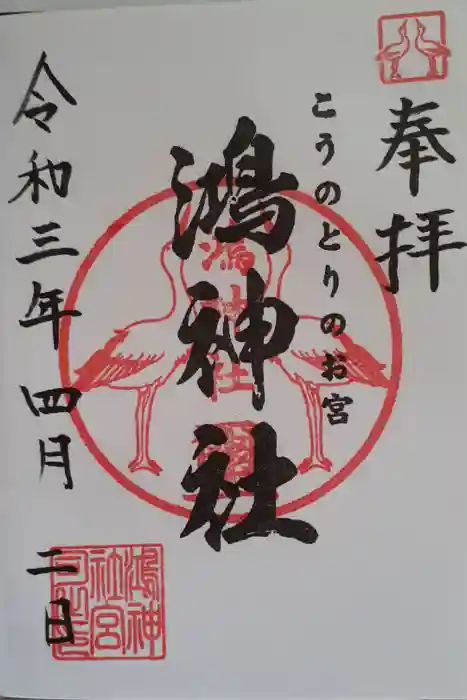 奉拝
こうのとりのお宮
鴻神社
令和三年四月二日
鴻神社
鴻神
社宮